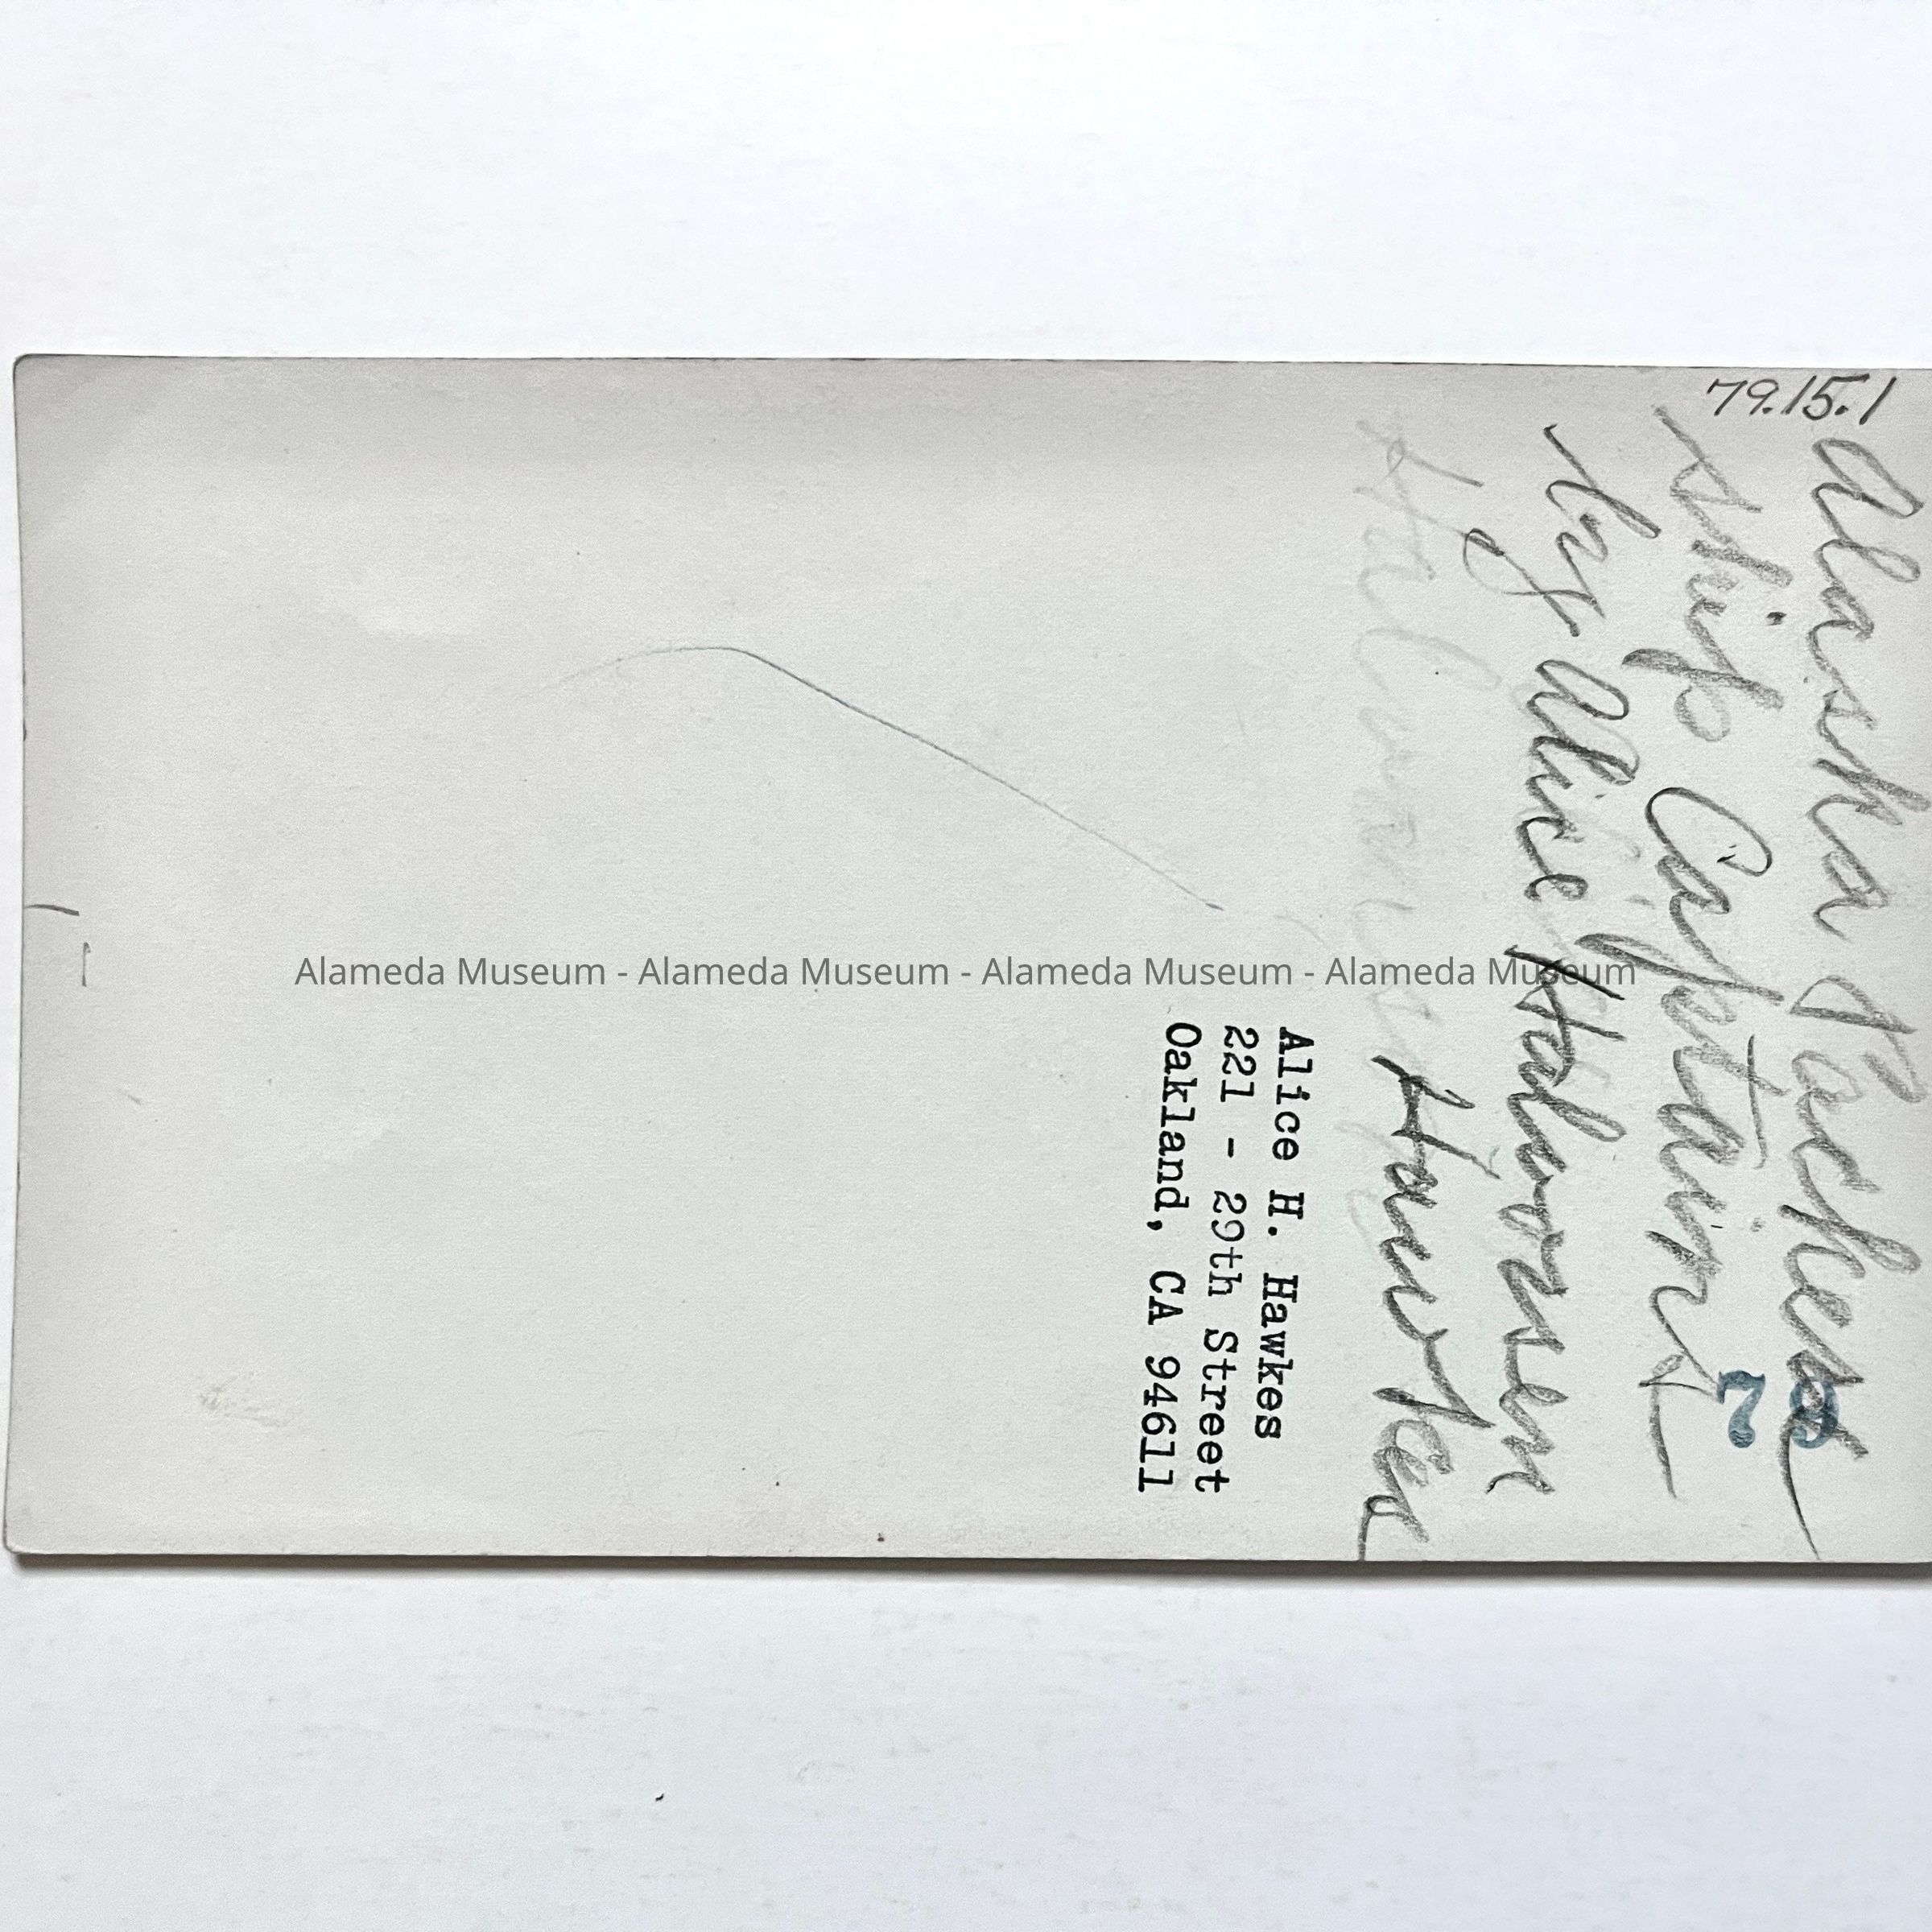 79.15.1
Alaska Packers
ship Captains
by Alice Halvorsen
Halvorsen Hawkes
79
Alice H. Hawkes
221 - 29th Street
Oakland, CA 94611
Alameda Museum - Alameda Museum - Alameda Museum - Alameda Museum